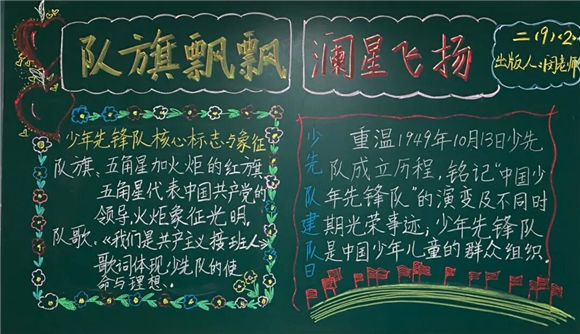 队旗飘飘
澜星飞扬
二(9)<2>
出版人:闵老师
少年先锋队核心标志与象征
队旗、五角星加火炬的红旗
五角星代表中国共产党的
领导火炬象征光明。
队歌:《我们是共产主义接班人》
歌词体现少先队的使
命与理想。
少先队建队日
重温1949年10月13日少先
队成立历程,铭记“中国少
年先锋队”的演变及不同时
期光荣事迹;少年先锋队
是中国少年儿童的群众组织。